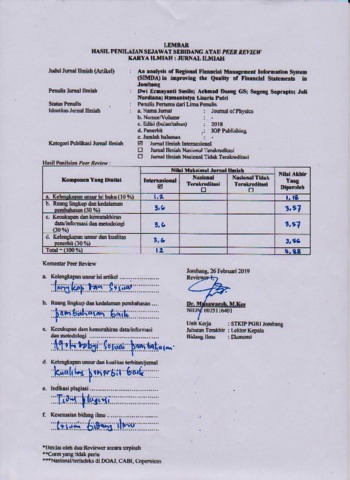 LEMBAR
HASIL PENILAIAN SEJAWAT SEBIDANG ATAU PEER REVIEW
KARYA ILMIAH : JURNAL ILMIAH
Judul Jurnal Ilmiah (Artikel) : An analysis of Regional Financial Management Information System
(SIMDA) in improving the Quality of Financial Statements in
Jombang
Penulis Jurnal Ilmiah : Dwi Ermayanti Susilo; Achmad Daeng GS; Sugeng Suprapto; Juli
Nurdiana; Rumanintya Lisaria Putri
Status Penulis : Penulis Pertama dari Lima Penulis
Identitas Jurnal Ilmiah : a. Nama Jurnal : Journal of Physics
b. Nomor/Volume : -
c. Edisi (bulan/tahun) : 2018
d. Penerbit : IOP Publishing
e. Jumlah halaman : -
Kategori Publikasi Jurnal Ilmiah : ☑ Jurnal Ilmiah Internasional
☐ Jurnal Ilmiah Nasional Terakreditasi
☐ Jurnal Ilmiah Nasional Tidak Terakreditasi
Hasil Penilaian Peer Review :
Komponen Yang Dinilai
Nilai Maksimal Jurnal Ilmiah
Internasional ☑
Nasional Terakreditasi ☐
Nasional Tidak Terakreditasi ☐
Nilai Akhir Yang Diperoleh
a. Kelengkapan unsur isi buku (10 %) 1,2 1,18
b. Ruang lingkup dan kedalaman
pembahasan (30 %) 3,6 3,57
c. Kecukupan dan kemutakhiran
data/informasi dan metodologi
(30 %) 3,6 3,57
d. Kelengkapan unsur dan kualitas
penerbit (30 %) 3,6 3,56
Total = (100 %) 12
Komentar Peer Review
Jombang, 26 Februari 2019
Reviewer
a. Kelengkapan unsur isi artikel
lengkap dan sesuai
b. Ruang lingkup dan kedalaman pembahasan
pembahasan baik
Dr. Munawaroh, M.Kes
NIDN. 0025116401
c. Kecukupan dan kemutakhiran data/informasi
dan metodologi
Metodologi sesuai pembahasan
Unit Kerja : STKIP PGRI Jombang
Jabatan Terakhir : Lektor Kepala
Bidang Ilmu : Ekonomi
d. Kelengkapan unsur dan kualitas terbitan/jurnal
kualitas penerbit baik
e. Indikasi plagiasi
Tidak plagiasi
f. Kesesuaian bidang ilmu
sesuai bidang ilmu
*Dinilai oleh dua Reviewer secara terpisah
**Coret yang tidak perlu
***Nasional/terindeks di DOAJ, CABI, Copernicus